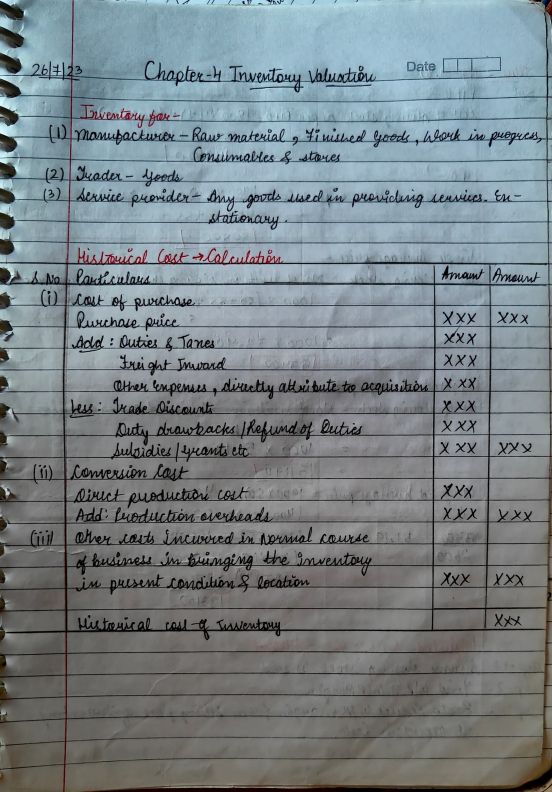 26/7/23 Chapter-4 Inventory Valuation Date
Inventory for-
(1) Manufacturer - Raw material, Finished Goods, Work in progress,
Consumables & stores
(2) Trader - Goods
(3) Service provider - Any goods used in providing services. Ex-
stationary.
Historical Cost → Calculation
S.No Particulars Amount Amount
(i) Cost of purchase
Purchase price XXX XXX
Add : Duties & Taxes XXX
Freight Inward XXX
Other expenses, directly attribute to acquisition XXX
Less : Trade Discounts XXX
Duty drawbacks / Refund of Duties XXX
Subsidies / grants etc XXX XXX
(ii) Conversion Cost
Direct production cost XXX
Add : Production overheads XXX XXX
(iii) Other costs incurred in Normal course
of business in bringing the inventory
in present condition & location XXX XXX
Historical cost of Inventory XXX